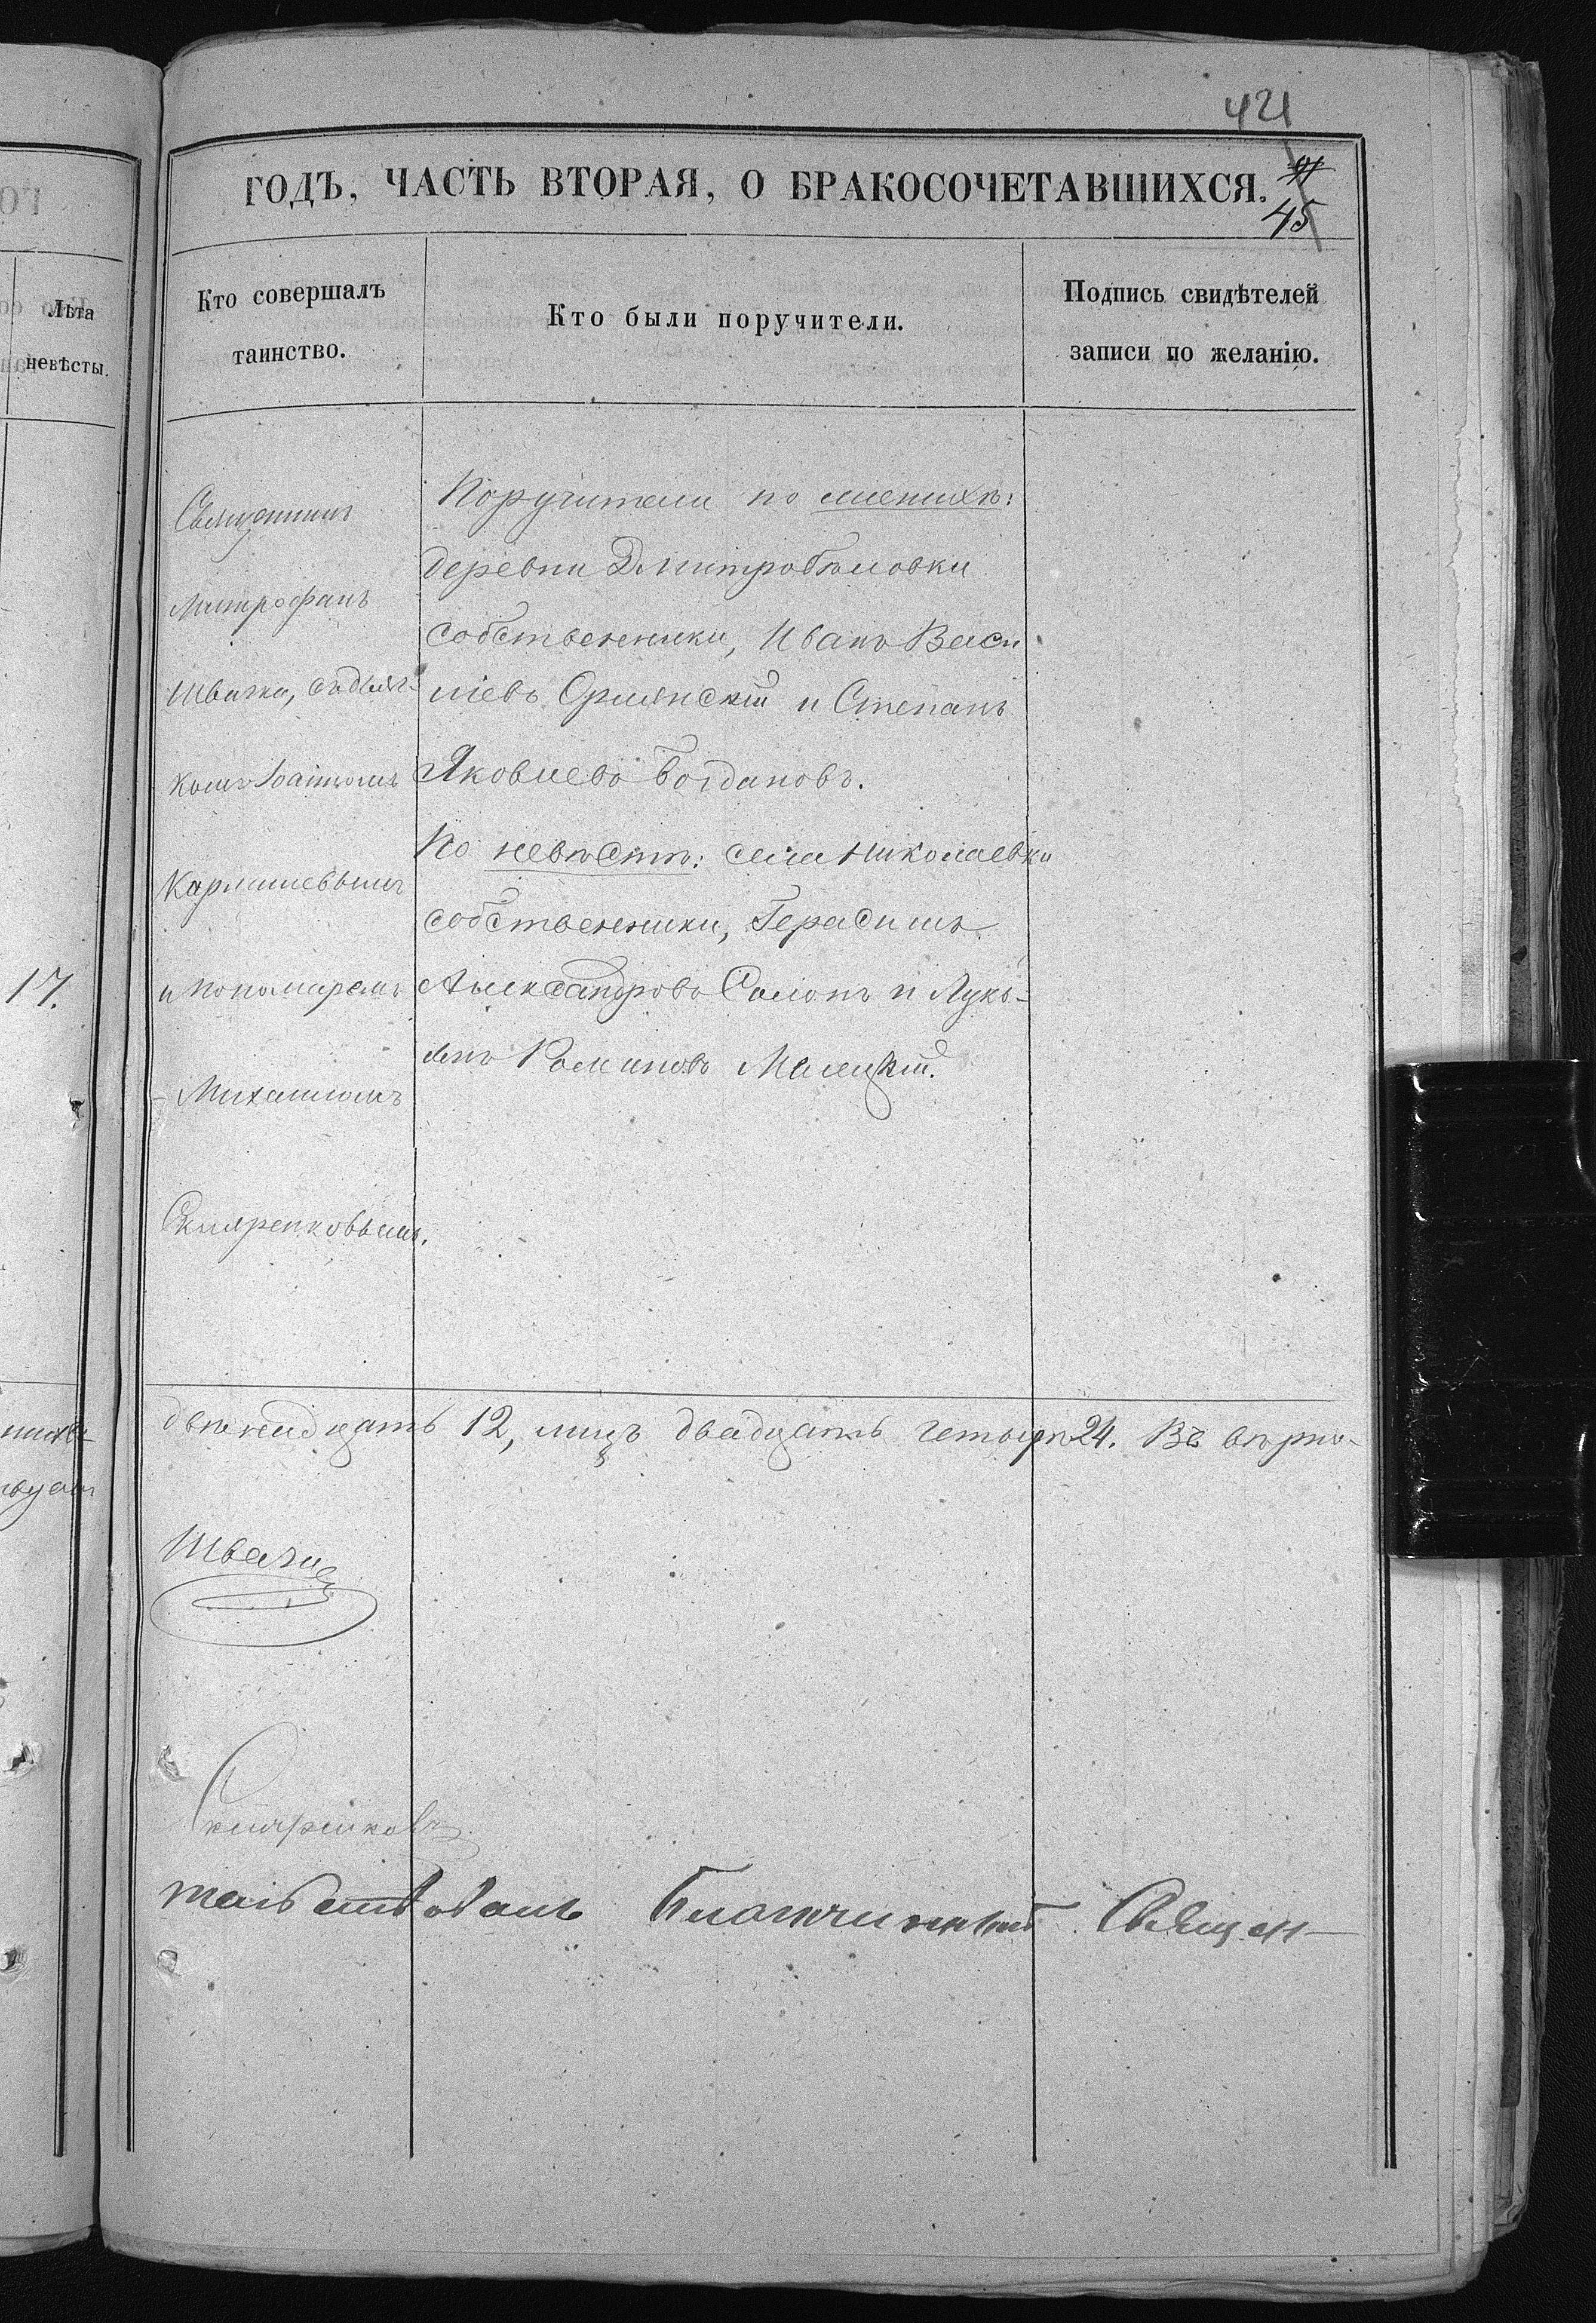 421
ГОДЪ, ЧАСТЬ ВТОРАЯ, О БРАКОСОЧЕТАВШИХСЯ.
45
Лѣта
невѣсты.
Кто совершалъ
таинство.
Кто были поручители.
Подпись свидѣтелей
записи по желанію.
17.
Священникъ
Митрофанъ
Швачка, съ дьяч-
комъ
Кармишевымъ
и пономаремъ
Михаиломъ
Скляренковымъ.
Поручители по женихѣ:
деревни Дмитробѣловки
собственники, Иванъ Васи
льевъ Орлянскій и Степанъ
Яковлевъ Богдановъ.
По невѣстѣ: села Николаевки
собственники, Герасимъ
Александровъ Салонъ и Лукь-
янъ Романовъ Малецкій.
двѣнадцать 12, лицъ двадцать четыре 24. Въ вѣрно-
Швачка
Скляренковъ
тельствовалъ Благочинный Священ-